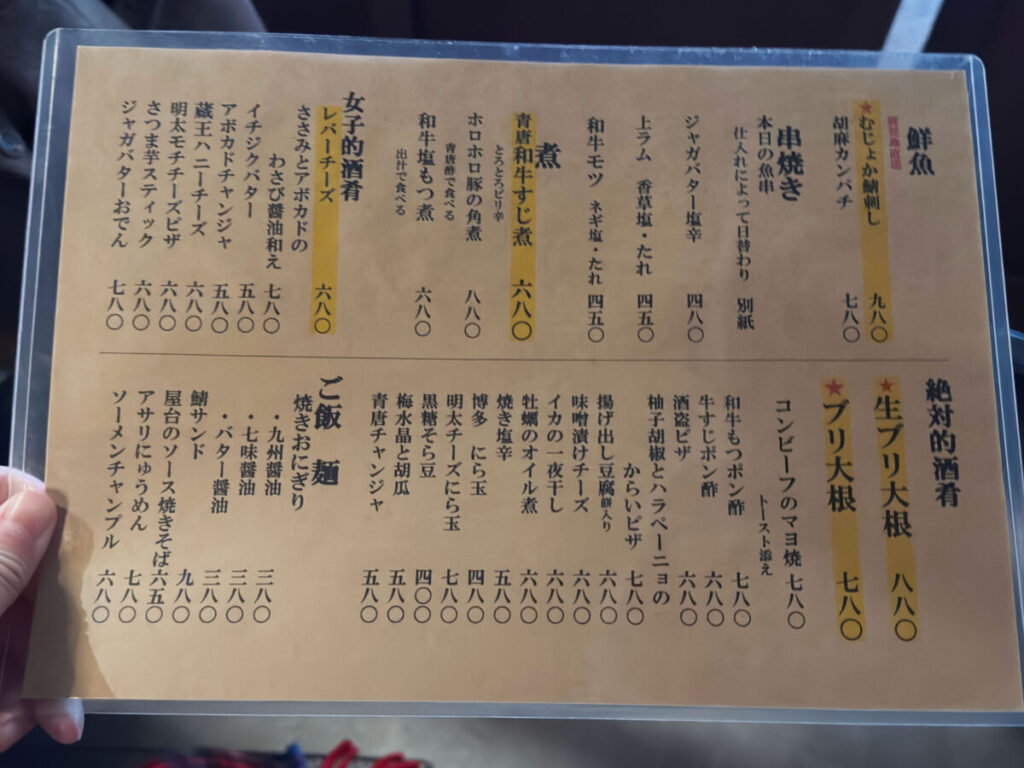 鮮魚
鹿児島直送
★むじょか鯖刺し 九八〇
胡麻カンパチ 七八〇
串焼き
本日の魚串
仕入れによって日替わり 別紙
ジャガバター塩辛 四八〇
上ラム 香草塩・たれ 四五〇
和牛モツ ネギ塩・たれ 四五〇
煮
青唐和牛すじ煮 六八〇
とろとろピリ辛
ホロホロ豚の角煮 八八〇
青唐酢で食べる
和牛塩もつ煮 六八〇
出汁で食べる
女子的酒肴
レバーチーズ 六八〇
ささみとアボカドの
わさび醤油和え 七八〇
イチジクバター 五八〇
アボカドチャンジャ 五八〇
蔵王ハニーチーズ 六八〇
明太モチチーズピザ 六八〇
さつま芋スティック 六八〇
ジャガバターおでん 七八〇
絶対的酒肴
★生ブリ大根 八八〇
★ブリ大根 七八〇
コンビーフのマヨ焼 七八〇
トースト添え
和牛もつポン酢 七八〇
牛すじポン酢 六八〇
酒盗ピザ 六八〇
柚子胡椒とハラペーニョの
からいピザ 七八〇
揚げ出し豆腐餅入り 六八〇
味噌漬けチーズ 六八〇
イカの一夜干し 六八〇
牡蠣のオイル煮 六八〇
焼き塩辛 五八〇
博多 にら玉 四八〇
明太チーズにら玉 七八〇
黒糖そら豆 四〇〇
梅水晶と胡瓜 五八〇
青唐チャンジャ 五八〇
ご飯 麺
焼きおにぎり
・九州醤油 三八〇
・七味醤油 三八〇
・バター醤油 三八〇
鯖サンド 九八〇
屋台のソース焼きそば 六五〇
アサリにゅうめん 七八〇
ソーメンチャンプル 六八〇